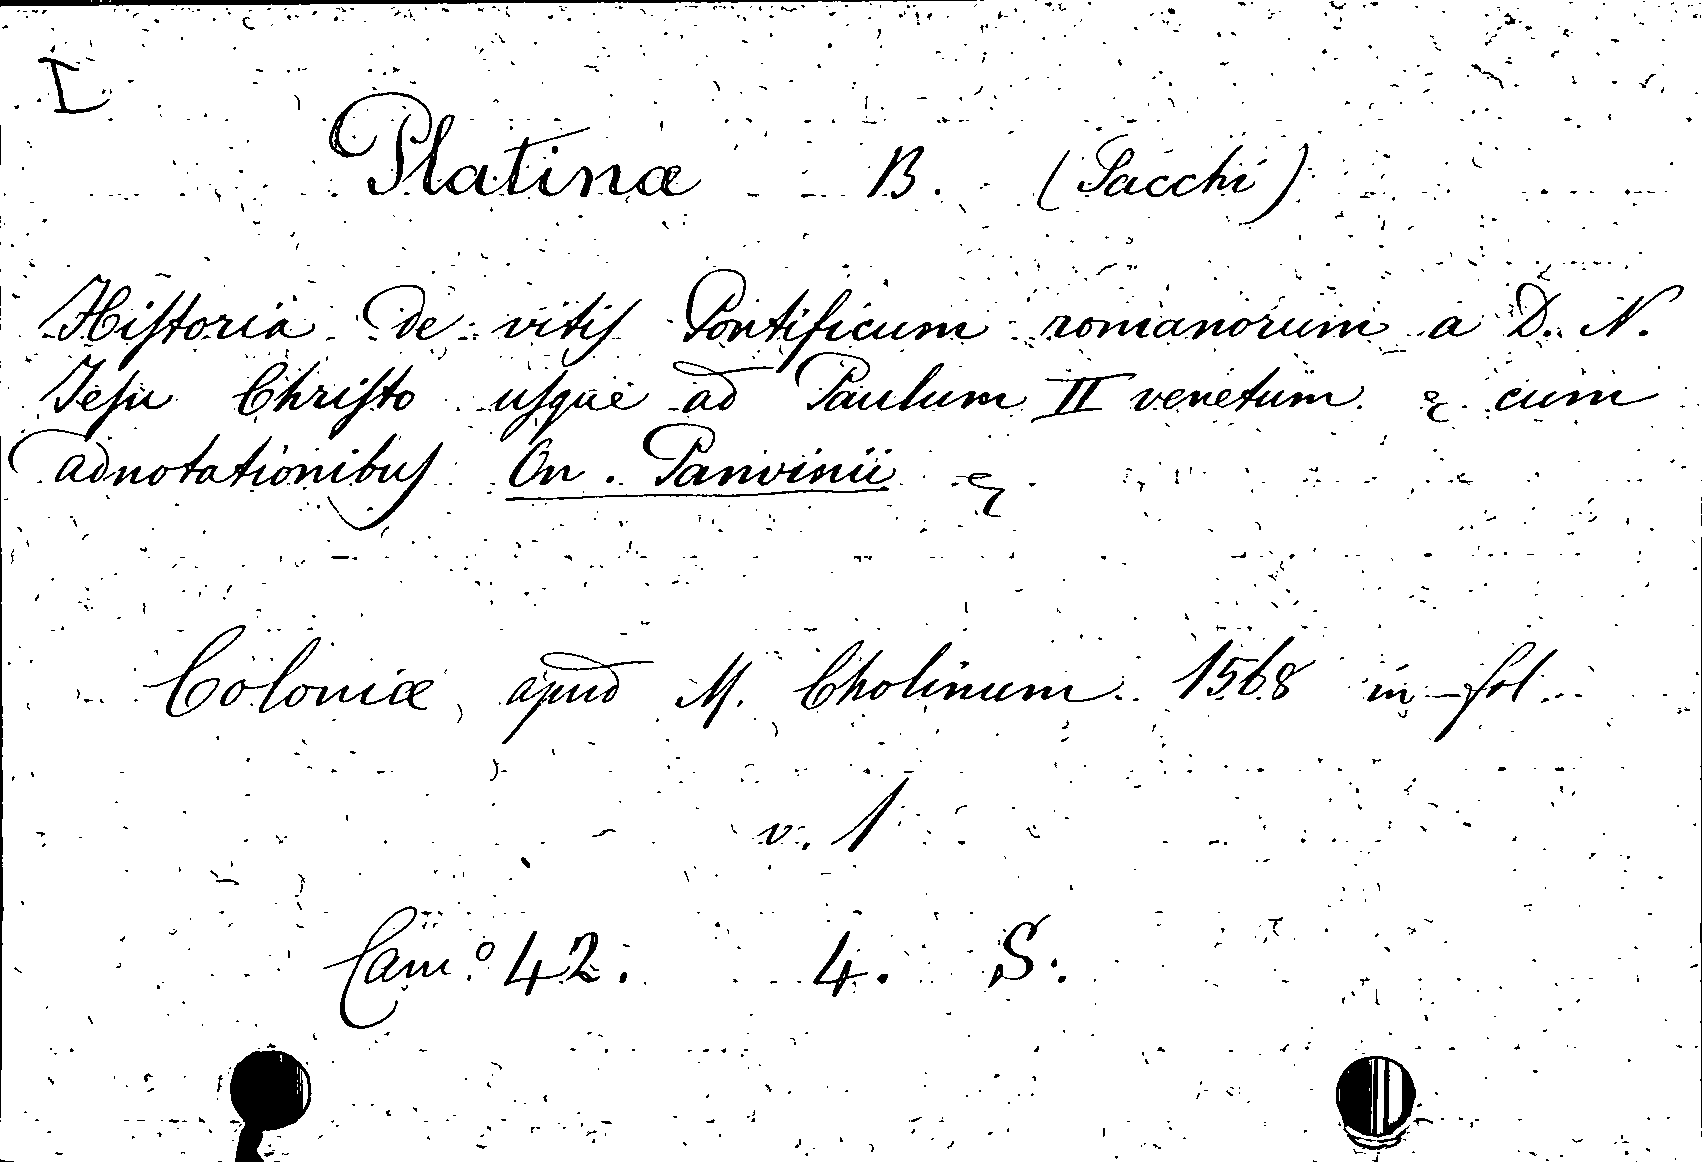 I
Platinæ B. (Sacchi)
Hiſtoria de vitiſ Pontificum romanorum a D. N.
Jeſu Chriſto uſque ad Paulum II venetum & cum
adnotationibuſ On. Panvinii &
Coloniæ, apud M. Cholinum 1568 in fol.
v. 1
Cam.º 42. 4. S.